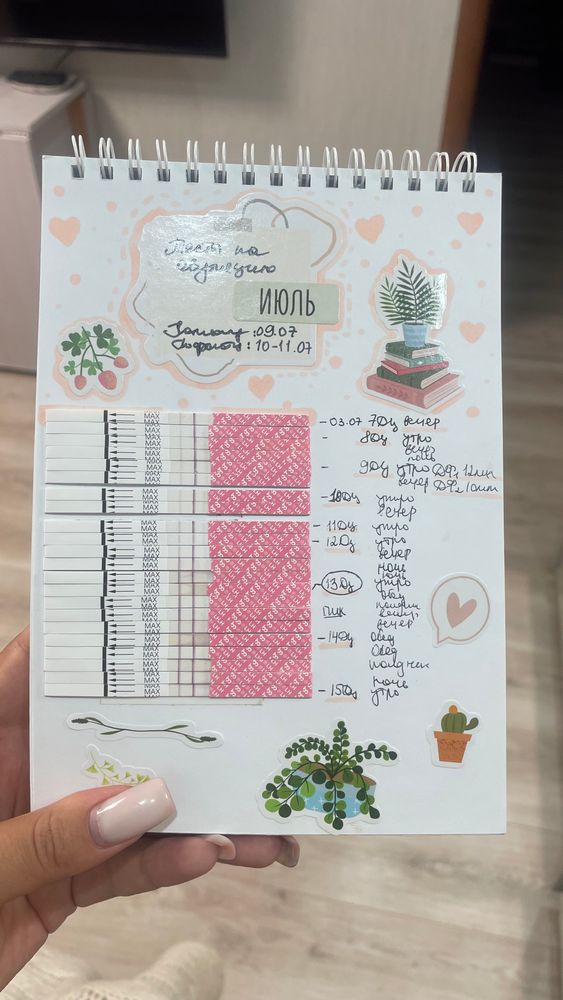 Тесты на
овуляцию
ИЮЛЬ
:09.07
: 10-11.07
- 03.07 7Дц вечер
- 8Дц утро
вечер
ночь
- 9Дц утро ДФ₁ 12мм
вечер ДФ₂ 10мм
- 10Дц утро
вечер
- 11Дц утро
- 12Дц утро
вечер
ночь
ночь
13Дц утро
обед
полдник
вечер
ПИК вечер
- 14Дц обед
обед
полдник
ночь
- 15Дц утро
MAX
MAX
MAX
MAX
MAX
MAX
MAX
MAX
MAX
MAX
MAX
MAX
MAX
MAX
MAX
MAX
MAX
MAX
MAX